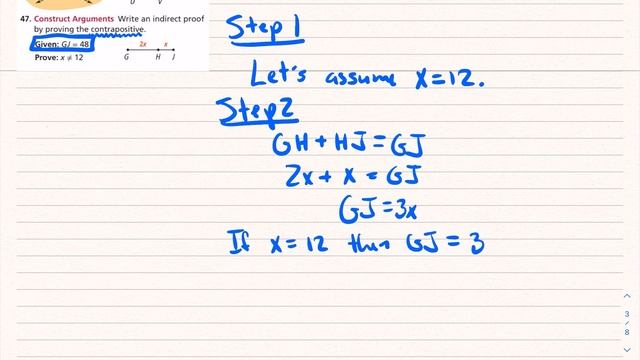 U V
47. Construct Arguments Write an indirect proof
by proving the contrapositive.
Given: GJ = 48
2x x
Prove: x ≠ 12
G H J
Step 1
Let's assume x=12.
Step 2
GH + HJ = GJ
2x + x = GJ
GJ = 3x
If x = 12 then GJ = 3
3
/
8